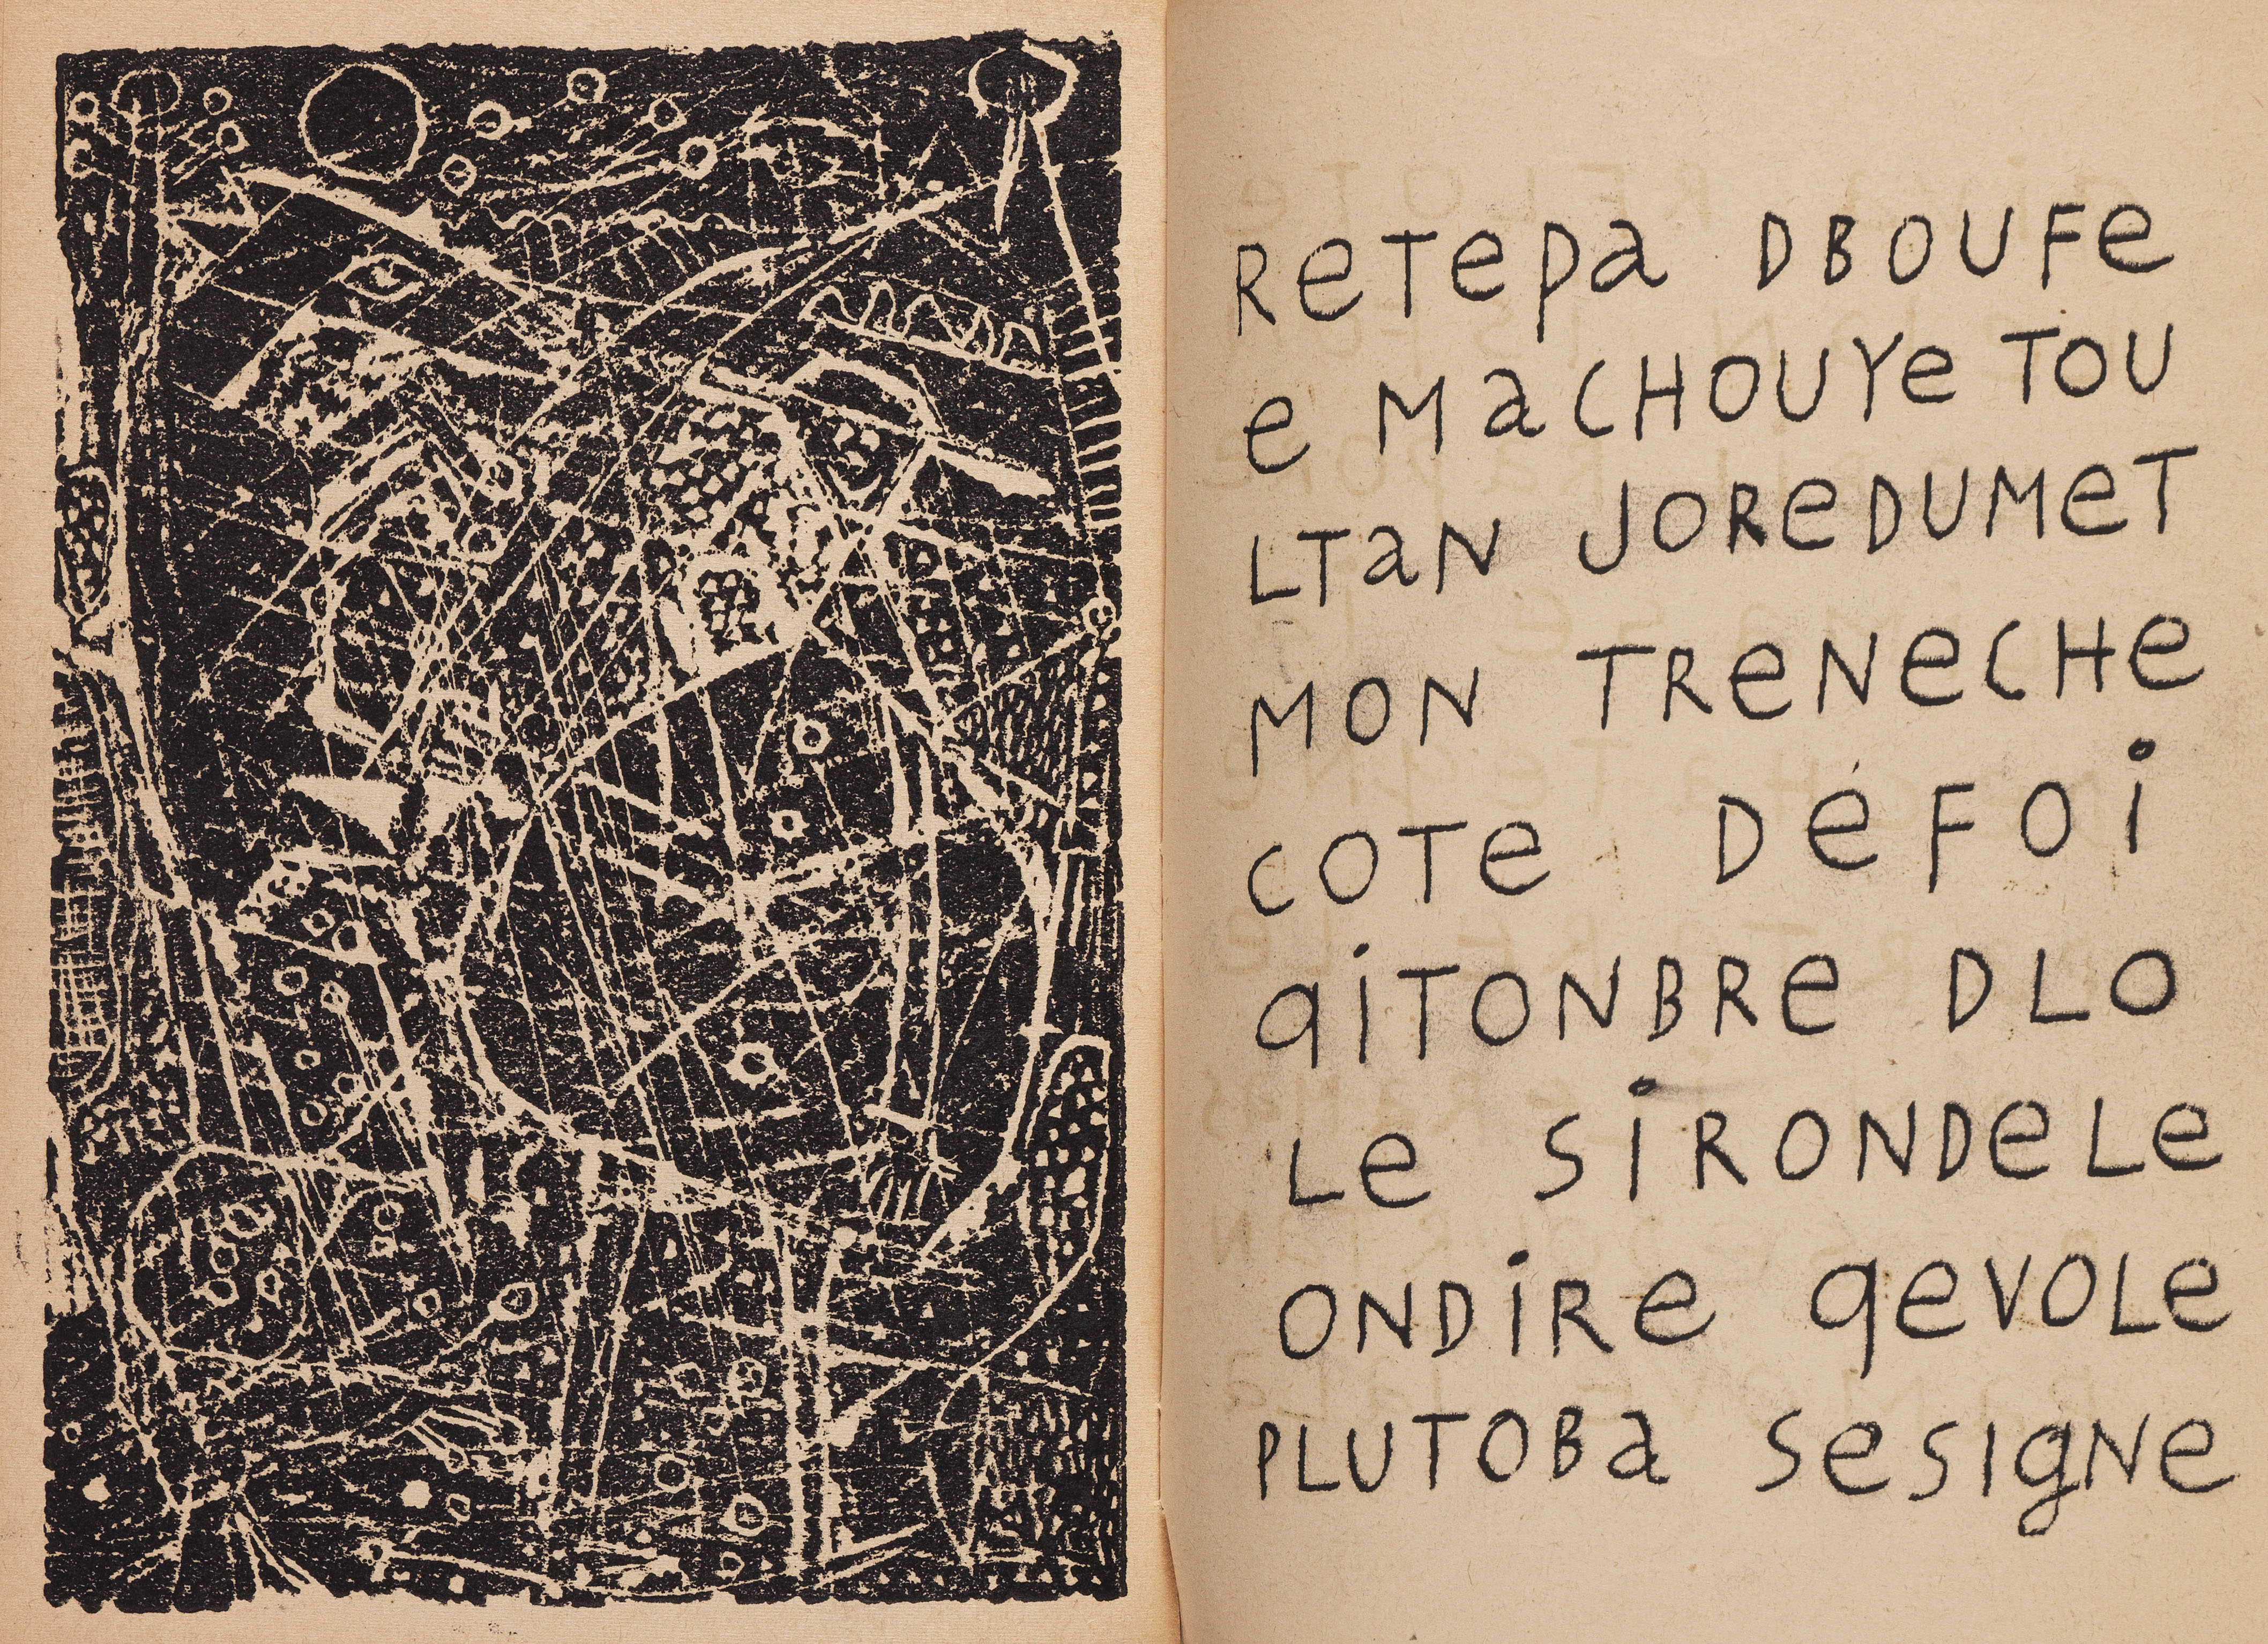 ReTepa DBOUFe
e MaCHOUYe TOU
LTaN JOReDUMeT
MON TReNeCHe
COTe DéFOi
qiTONBRe DLO
Le SiRONDeLe
ONDiRe qeVOLe
PLUTOBa SeSIgNe